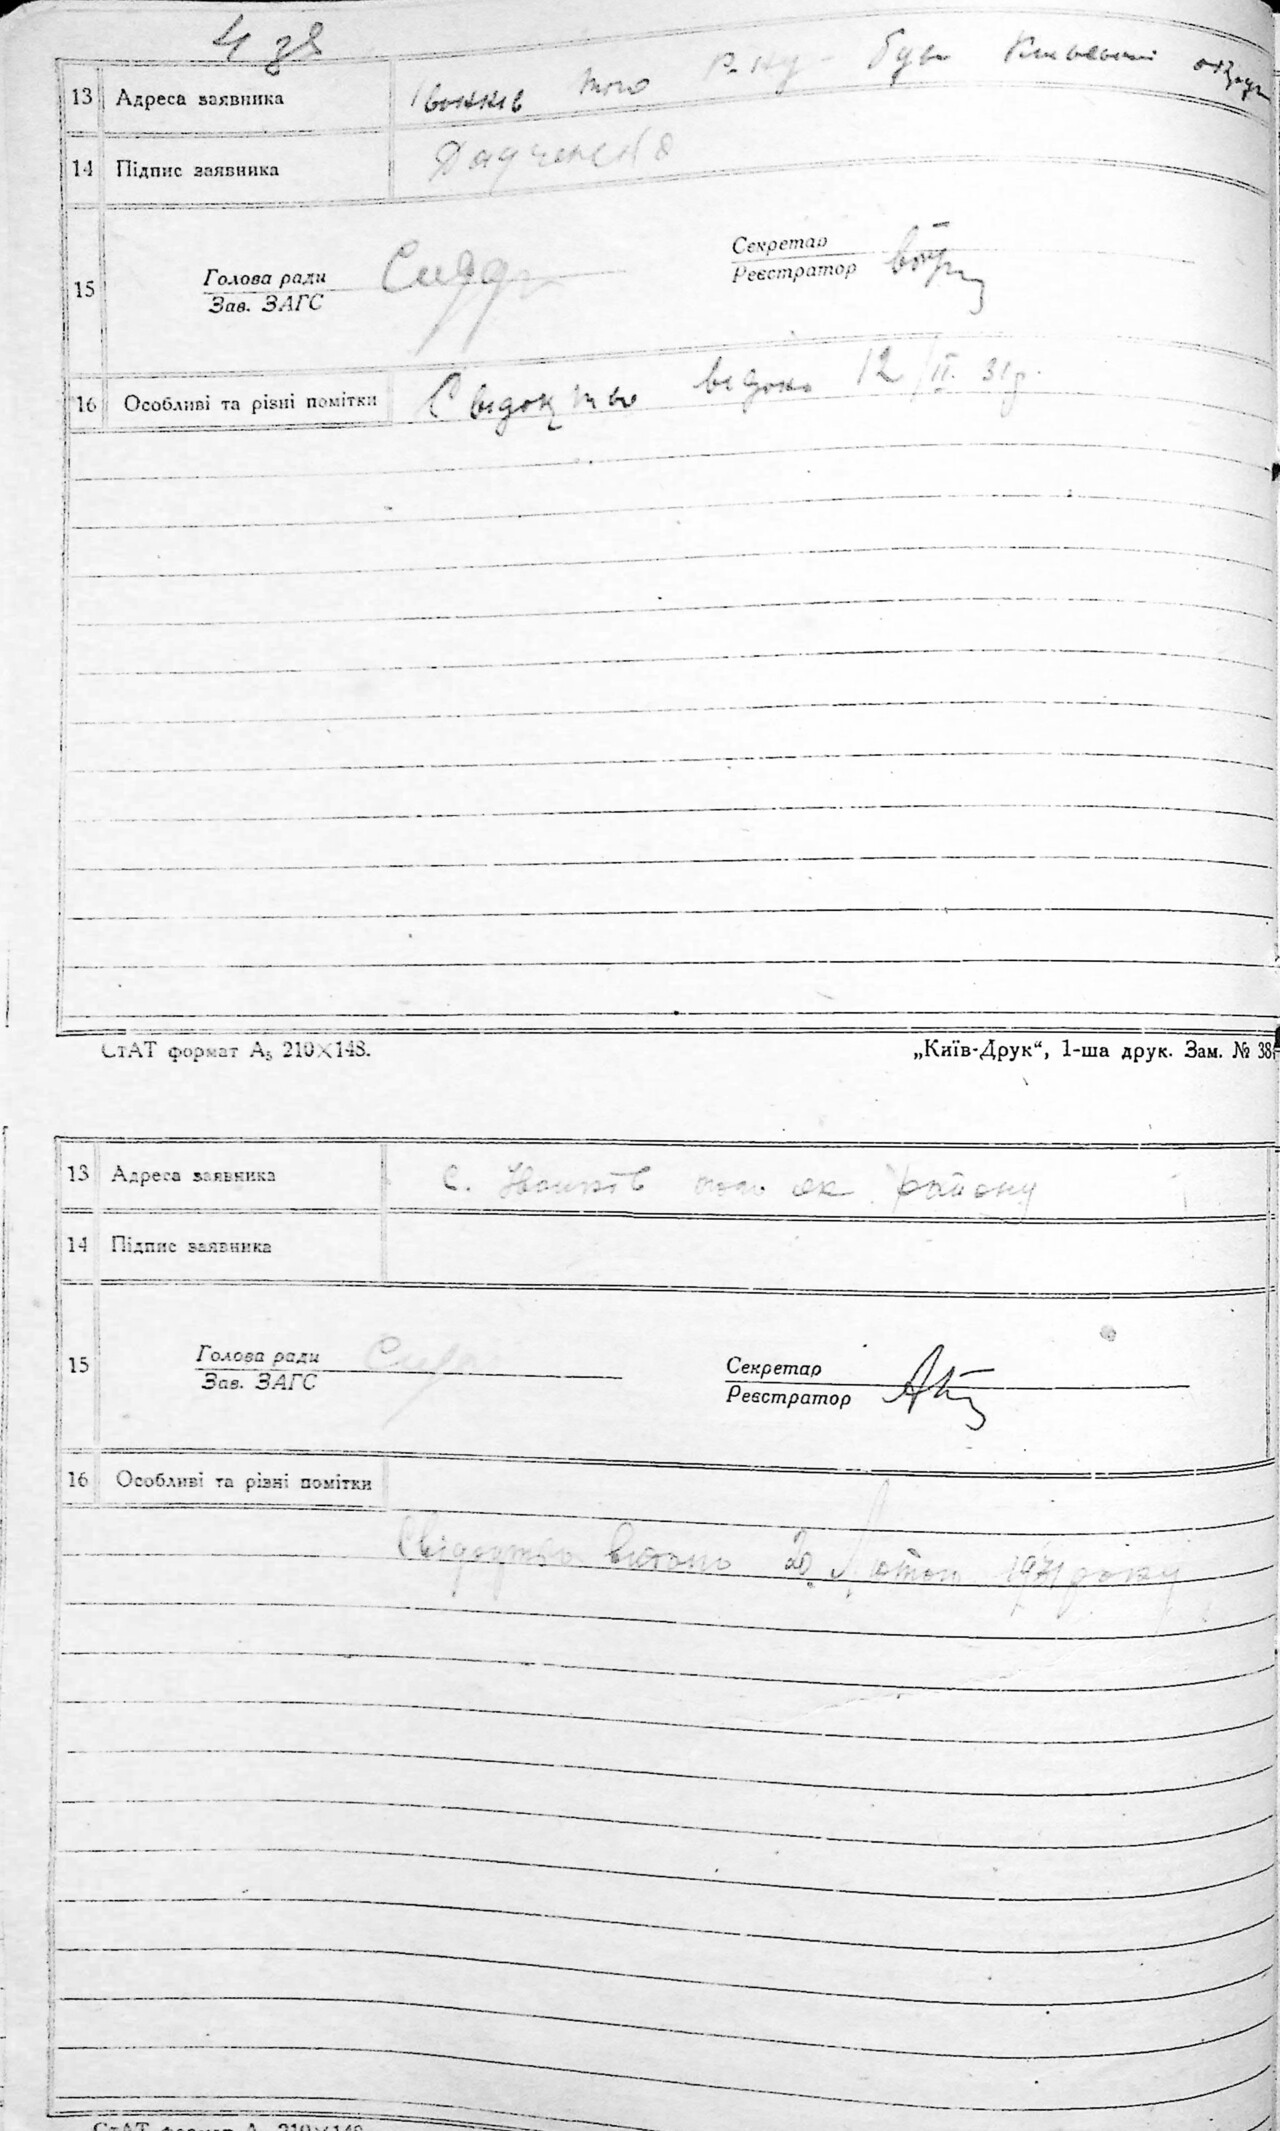 4 зв
13 Адреса заявника Іванків того р-ну був. Київської округи
14 Підпис заявника
15 Голова ради Секретар
Зав. ЗАГС Реєстратор
16 Особливі та різні помітки Свідоцтво видано 12/II. 31р.
СтАТ формат А₅ 210×148. „Київ-Друк“, 1-ша друк. Зам. № 38
13 Адреса заявника с. Іванків району
14 Підпис заявника
15 Голова ради Секретар
Зав. ЗАГС Реєстратор
16 Особливі та різні помітки
Свідоцтво видано 20 Лютого 1931 року
СтАТ формат А 210×148